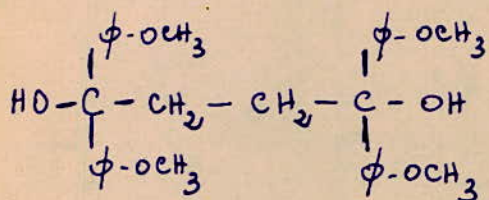 ϕ-OCH3 ϕ-OCH3
HO-C-CH2-CH2-C-OH
ϕ-OCH3 ϕ-OCH3